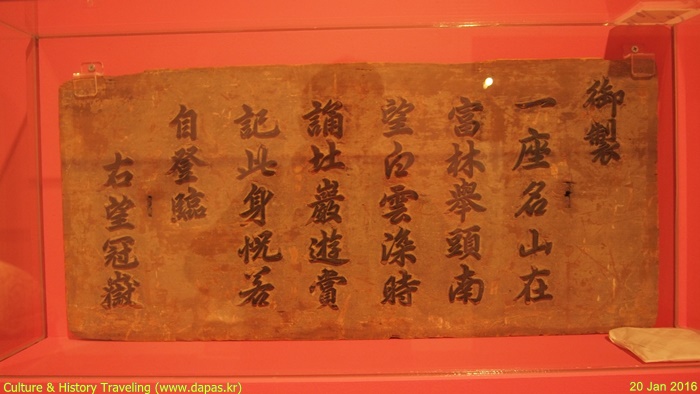 御製
一座名山在
富林舉頭南
望白雲深時
誦北巖遊賞
記此身怳若
自登臨
右望冠嶽
Culture & History Traveling (www.dapas.kr)
20 Jan 2016